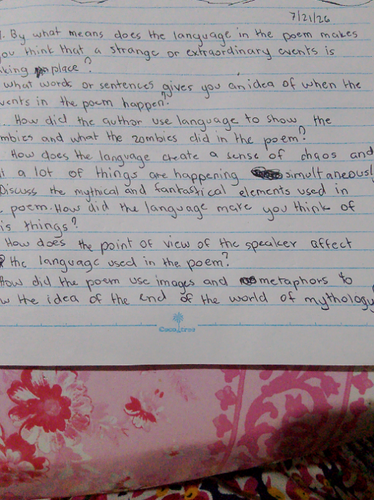 7/21/26
1. By what means does the language in the poem makes
you think that a strange or extraordinary events is
aking place?
what words or sentences gives you an idea of when the
vents in the poem happen?
. How did the author use language to show the
mbies and what the zombies did in the poem?
How does the language create a sense of chaos and
a lot of things are happening simultaneousl
Discuss the mythical and fantastical elements used in
poem. How did the language make you think of
is things?
How does the point of view of the speaker affect
the language used in the poem?
How did the poem use images and metaphors to
w the idea of the end of the world of mythology